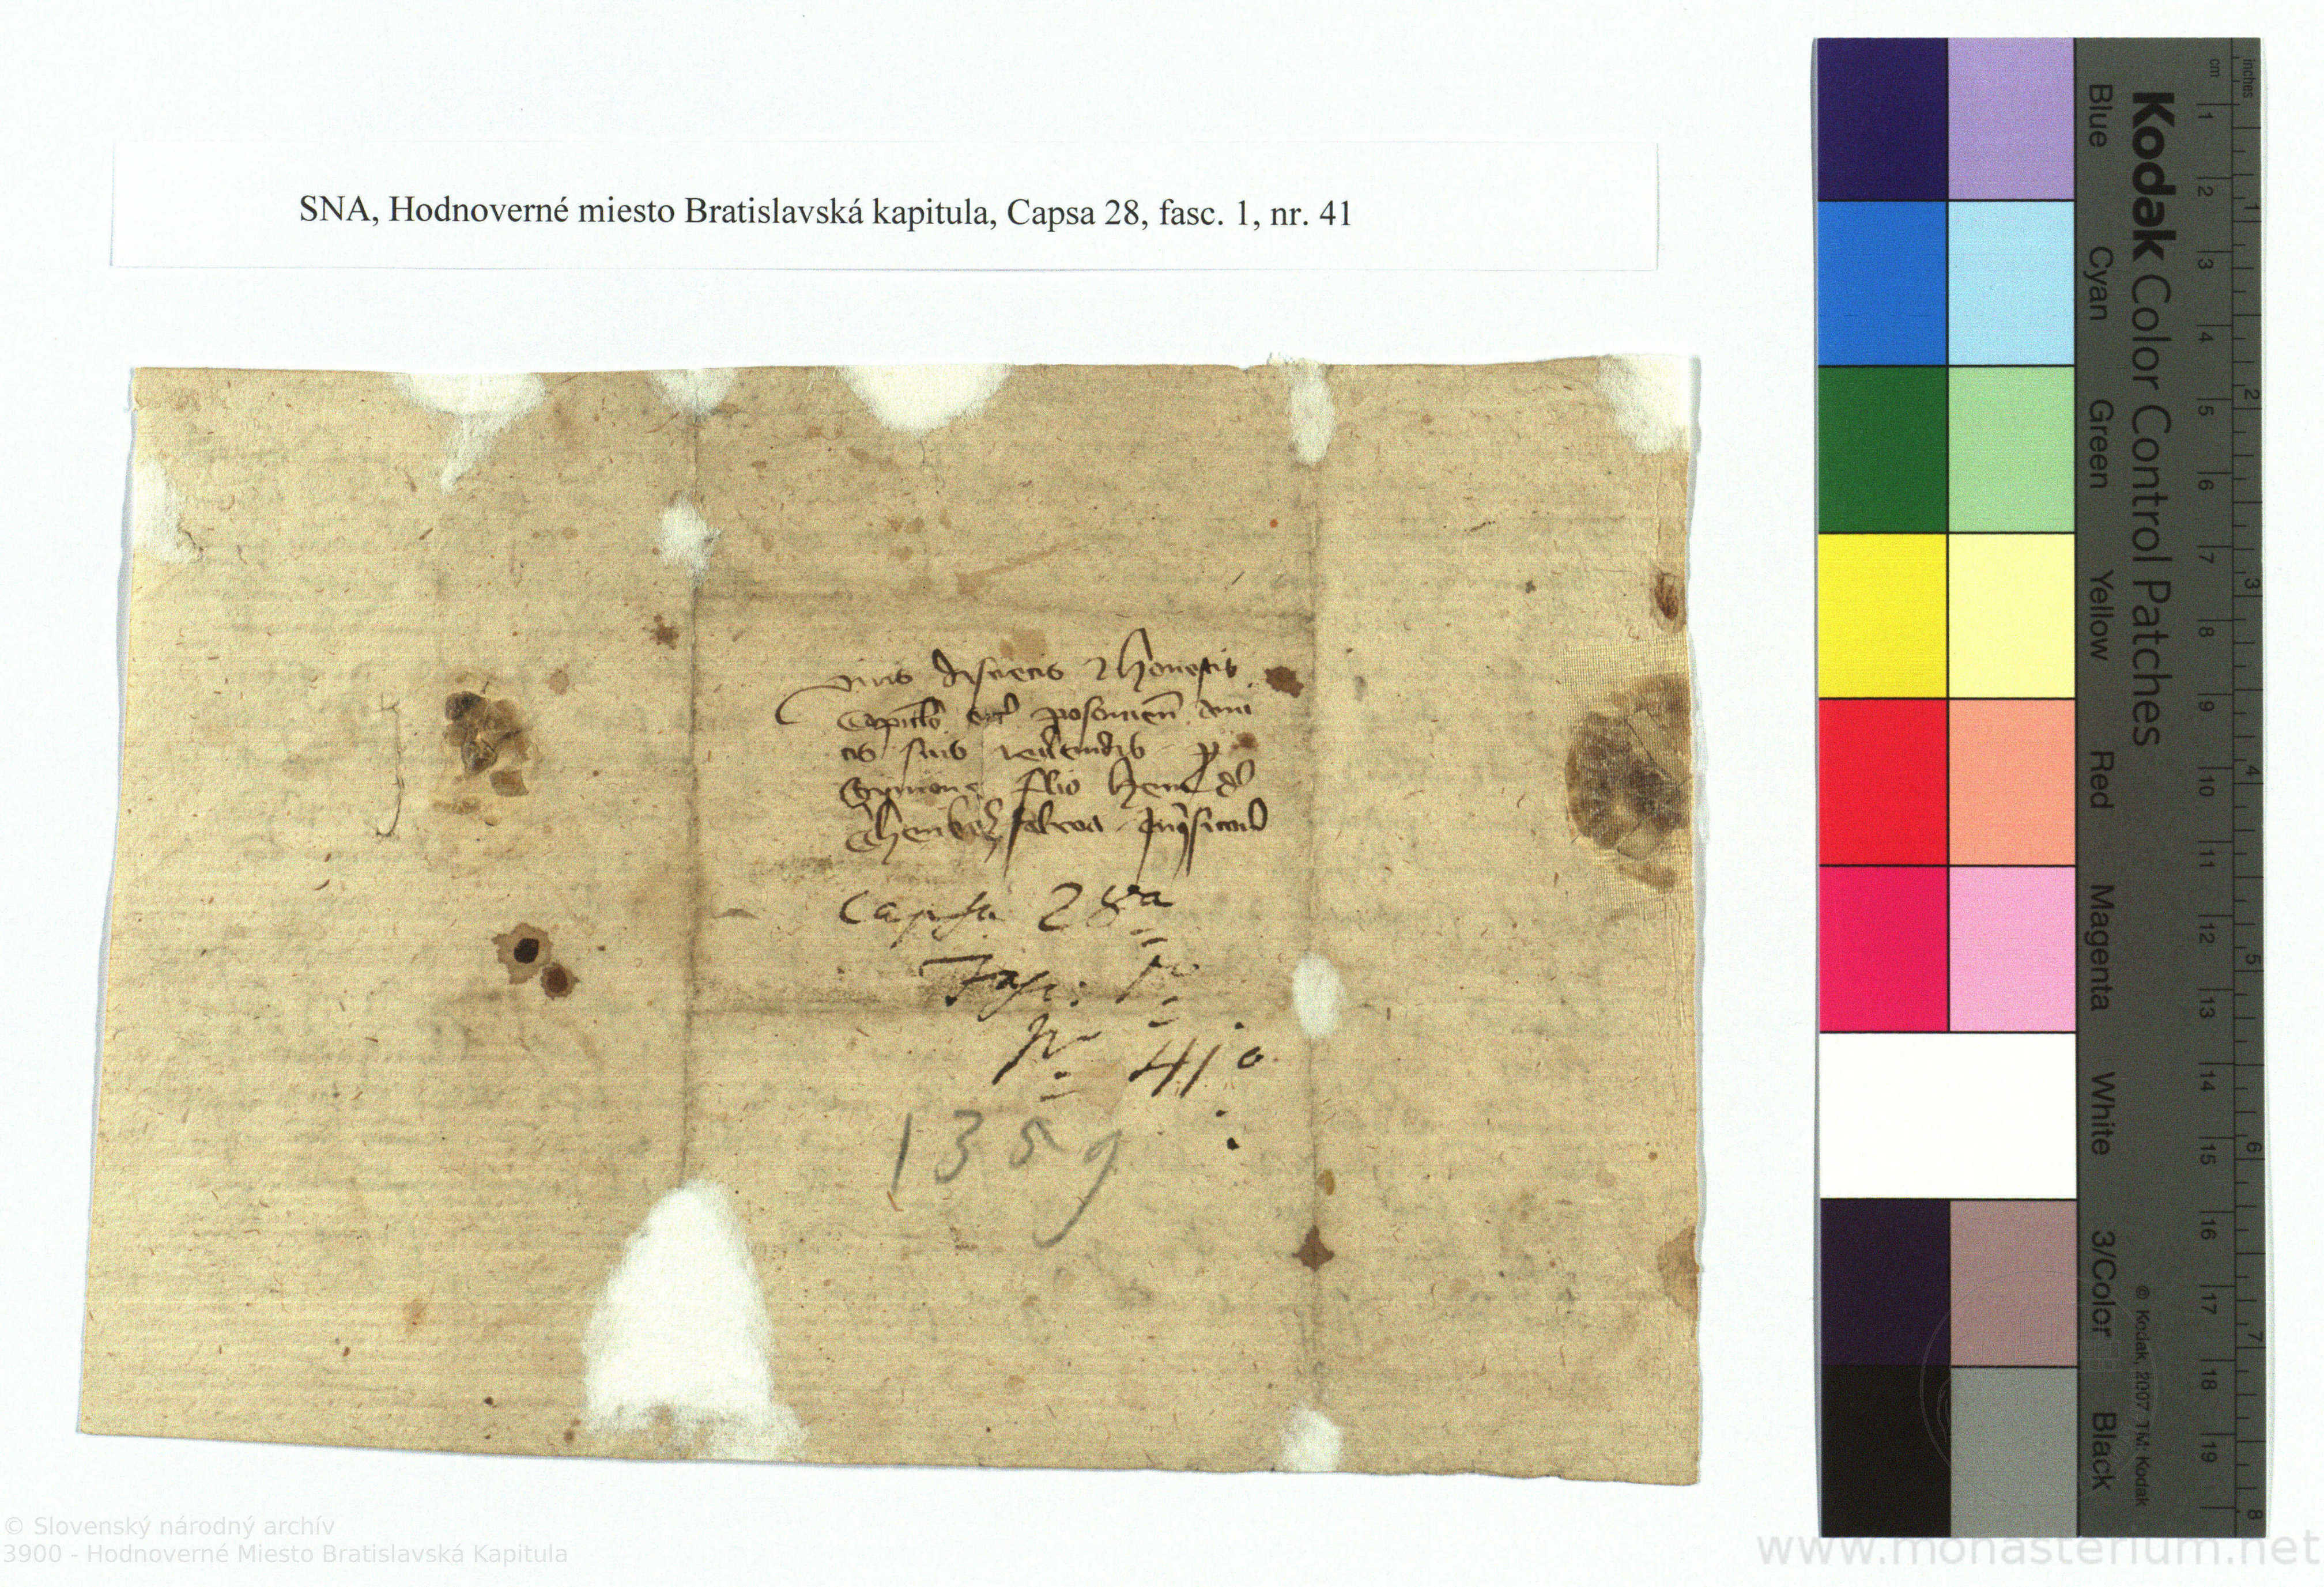 SNA, Hodnoverné miesto Bratislavská kapitula, Capsa 28, fasc. 1, nr. 41
viris discretis et honestis
Capitlo eccl posonien ami
cis suis reverendis p
Symone filio
Capsa 28a
Fasc: 1o
No 41o
1359
Kodak Color Control Patches
Blue Cyan Green Yellow Red Magenta White 3/Color Black
© Kodak, 2007 TM: Kodak
inches 1 2 3 4 5 6 7 8
cm 1 2 3 4 5 6 7 8 9 10 11 12 13 14 15 16 17 18 19
© Slovenský národný archív
3900 - Hodnoverné Miesto Bratislavská Kapitula
www.monasterium.net